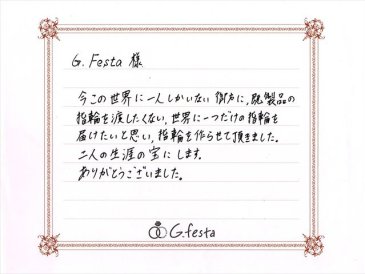 G. Festa 様
今この世界に一人しかいない彼方に、既製品の
指輪を渡したくない、世界に一つだけの指輪を
届けたいと思い、指輪を作らせて頂きました。
二人の生涯の宝にします。
ありがとうございました。
G.festa